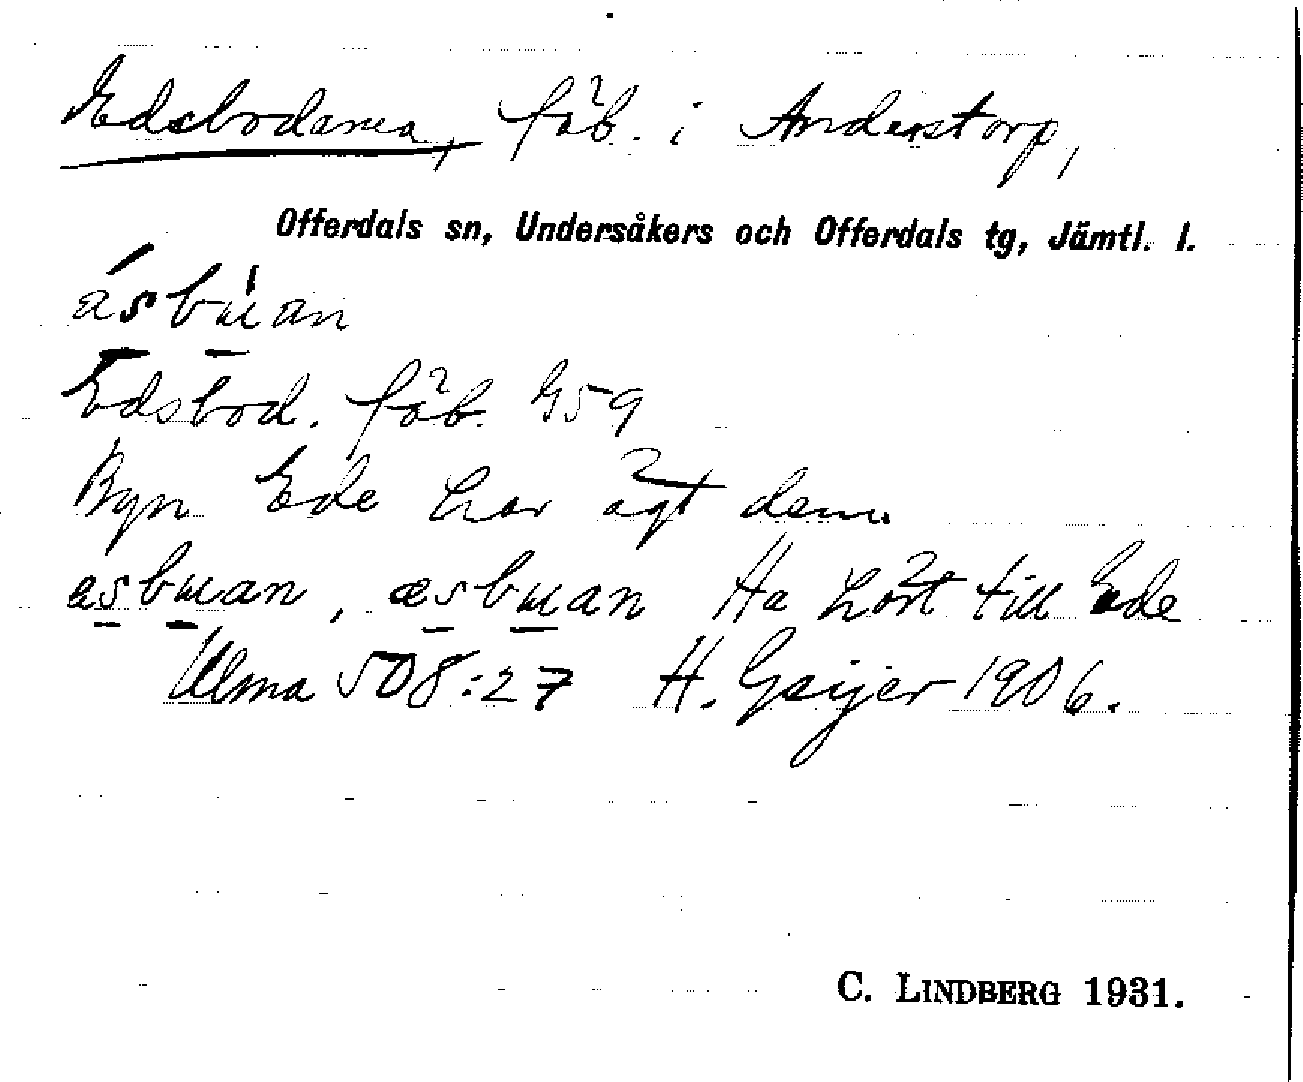 Edsbodarna, fäb. i Anderstorp,
Offerdals sn, Undersåkers och Offerdals tg, Jämtl. l.
ásbúan
Edsbod. fäb. G59
Byn Ede har ägt dem.
asbuan, æsbuan Ha hört till Ede
Ulma 508:27 H. Geijer 1906.
C. LINDBERG 1931.